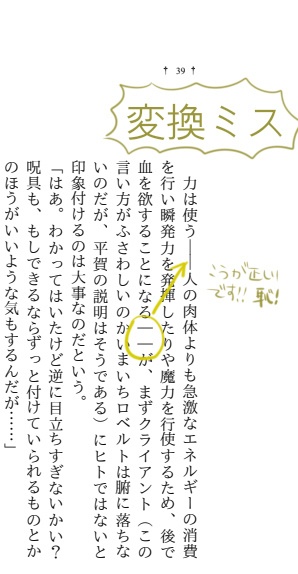 † 39 †
変換ミス
力は使う――人の肉体よりも急激なエネルギーの消費
を行い瞬発力を発揮したりや魔力を行使するため、後で
血を欲することになる――が、まずクライアント（この
言い方がふさわしいのかいまいちロベルトは腑に落ちな
いのだが、平賀の説明はそうである）にヒトではないと
印象付けるのは大事なのだという。
「はあ。わかってはいたけど逆に目立ちすぎないかい？
呪具も、もしできるならずっと付けていられるものとか
のほうがいいような気もするんだが……」
こうが正しい
です!! 恥!